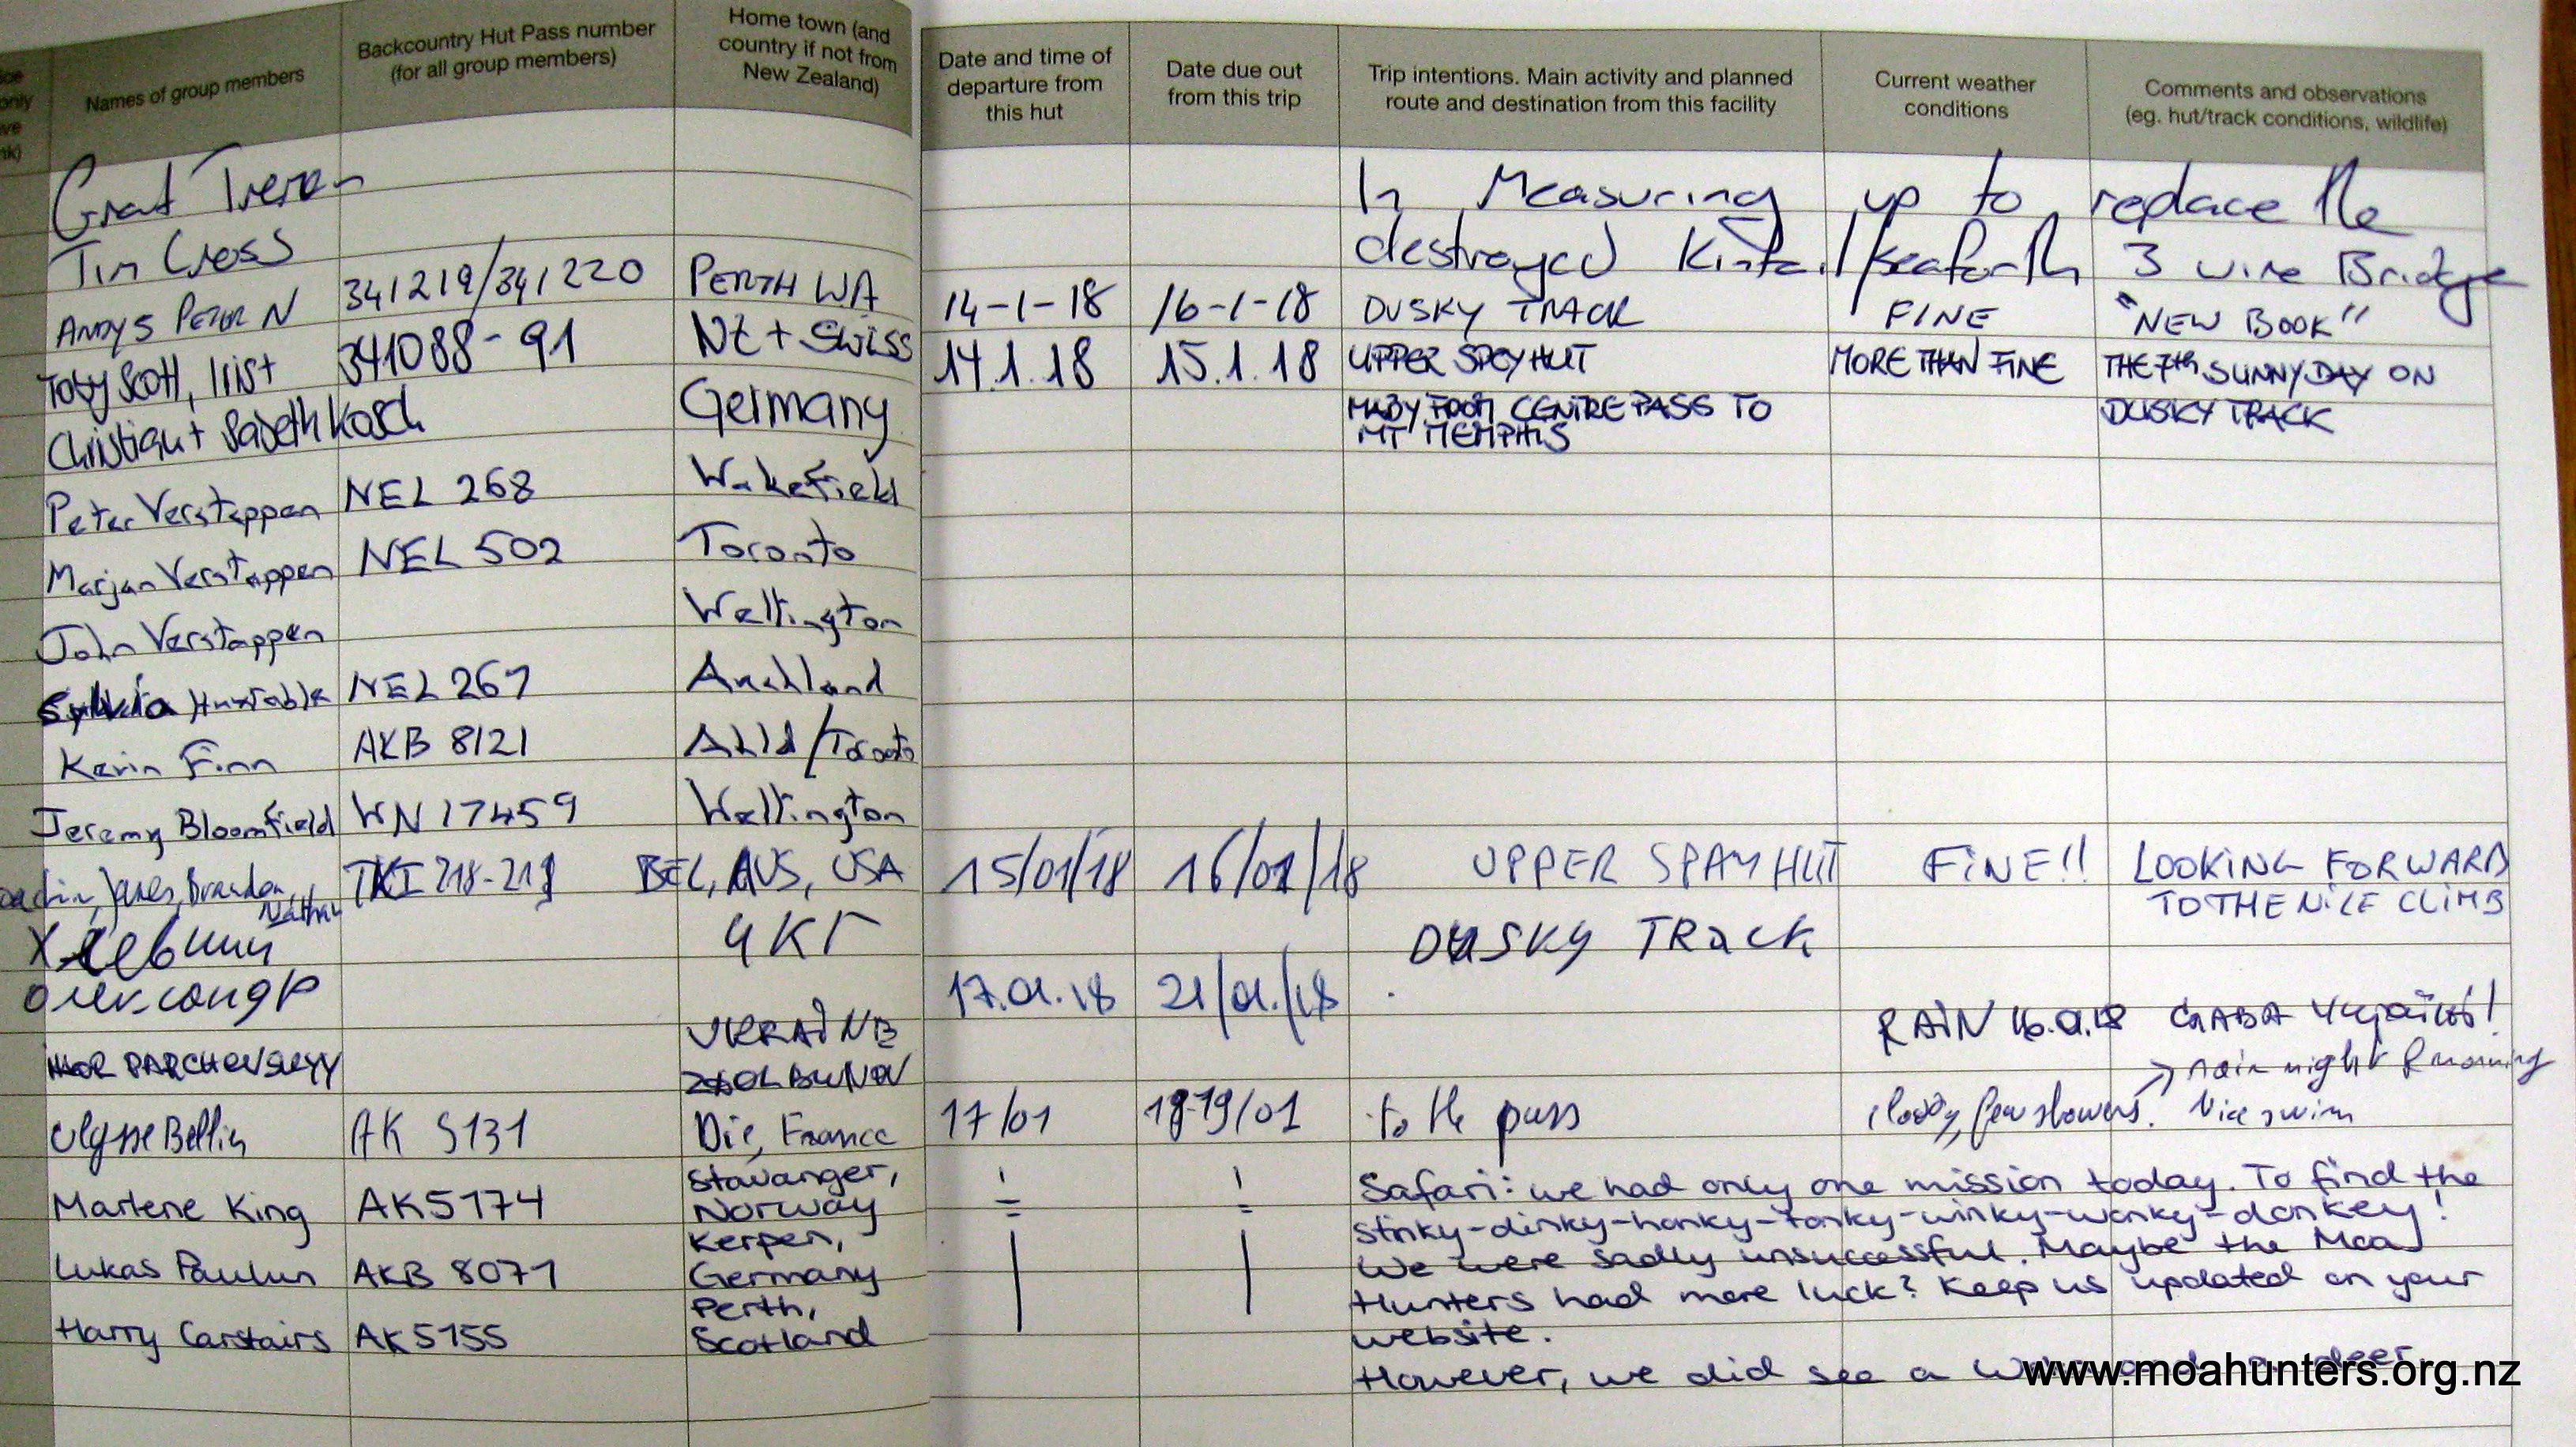 ice
only
ve
nk)
Names of group members
Backcountry Hut Pass number
(for all group members)
Home town (and
country if not from
New Zealand)
Date and time of
departure from
this hut
Date due out
from this trip
Trip intentions. Main activity and planned
route and destination from this facility
Current weather
conditions
Comments and observations
(eg. hut/track conditions, wildlife)
Grant
In Measuring up to replace the
Tim Cross
destroyed Kintail/Seaforth 3 wire Bridge
ANDY S PETER N 341219/341220 PERTH WA 14-1-18 16-1-18 DUSKY TRACK FINE "NEW BOOK"
Toby Scott, 341088-91 NZ + Swiss 14.1.18 15.1.18 UPPER SPEY HUT MORE THAN FINE THE 7th SUNNY DAY ON
Christian + Kosch Germany CENTRE PASS TO DUSKY TRACK
MT MEMPHIS
Peter Verstappen NEL 268 Wakefield
Marjan Verstappen NEL 502 Toronto
John Verstappen Wellington
Sylvia Huxtable NEL 267 Auckland
Kevin Finn AKB 8121 Akld/Toronto
Jeremy Bloomfield WN 17459 Wellington
James, Brandon, TKI 218-219 BEL, AUS, USA 15/01/18 16/01/18 UPPER SPAY HUT FINE!! LOOKING FORWARD
Nathan TO THE NICE CLIMB
Хлевнии УКР DUSKY TRACK
Олександр 17.01.18 21/01/18
UKRAINE RAIN 16.01.18 СЛАВА Україні!
IHOR PARCHEVSKYY ZDOLBUNOV
→ rain night & morning
Ulysse Bellin AK 5131 Die, France 17/01 18-19/01 to the pass cloudy, few showers. Nice swim
Marlene King AK5174 Stavanger,
Norway
Safari: we had only one mission today. To find the
stinky-dinky-honky-tonky-winky-wonky-donkey!
Lukas Paulun AKB 8071 Kerpen,
Germany
We were sadly unsuccessful. Maybe the Moa
Hunters had more luck? Keep us updated on your
Harry Carstairs AK5155 Perth,
Scotland
website.
However, we did see a deer.
www.moahunters.org.nz